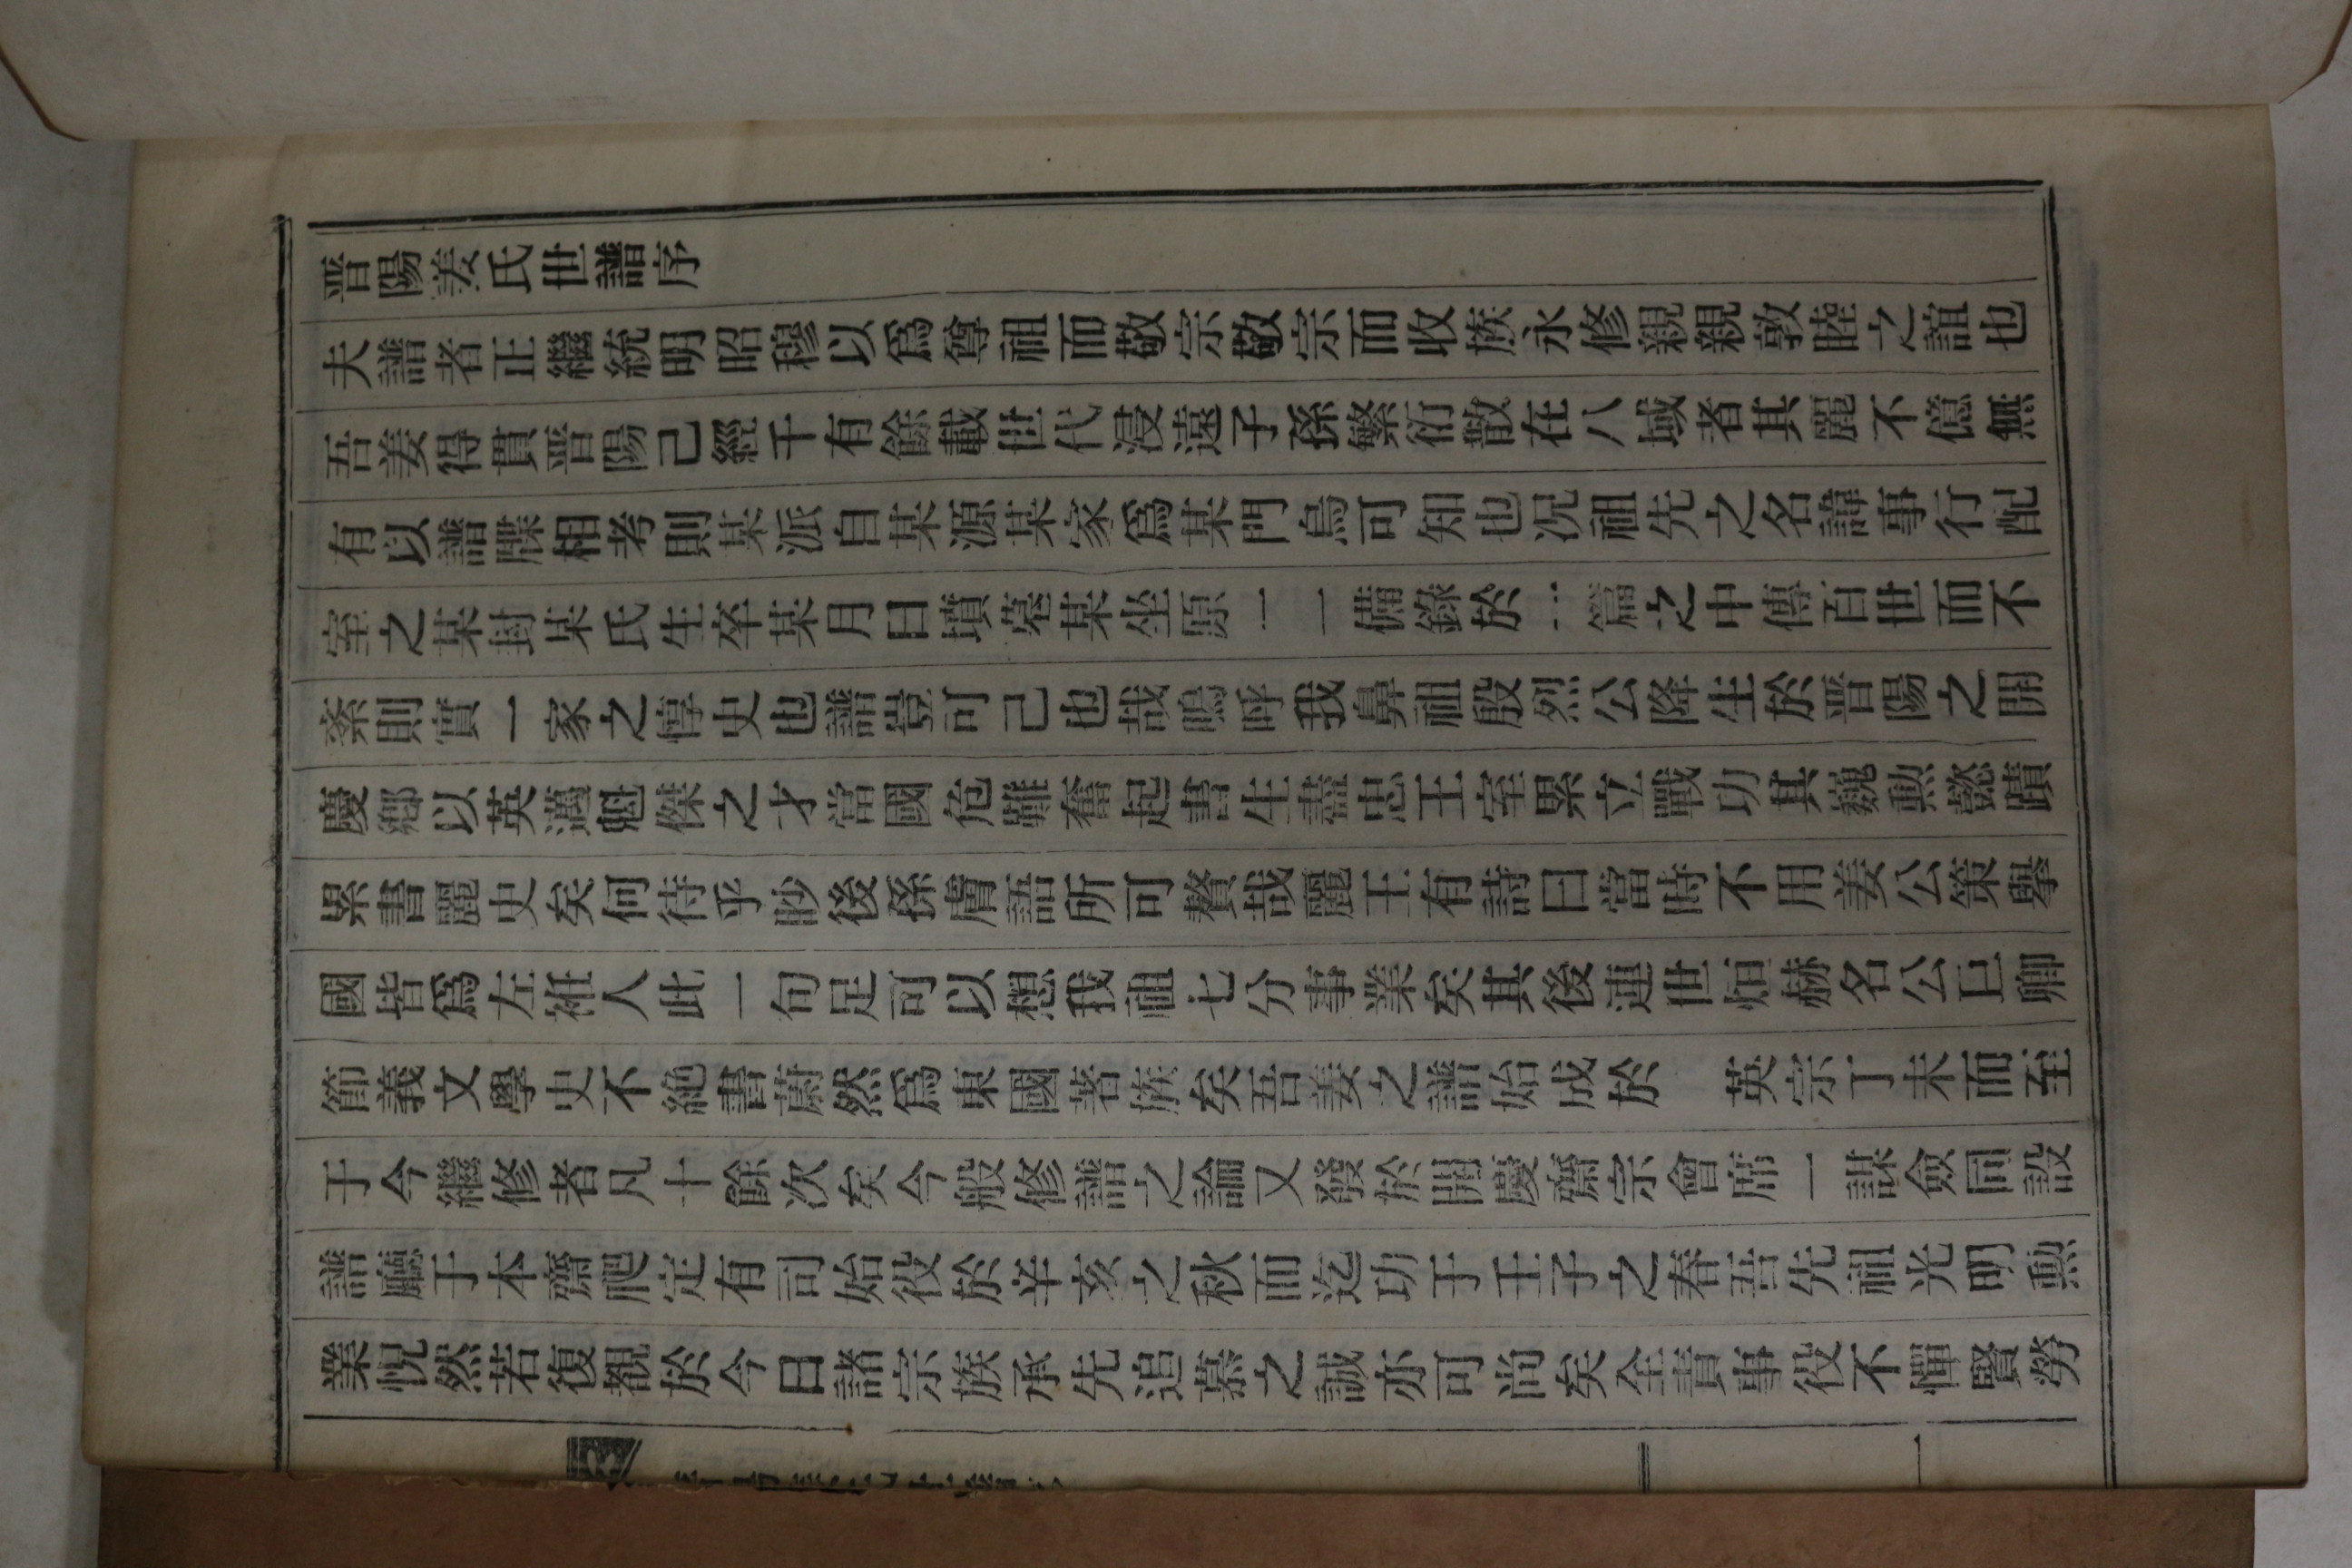 晋陽姜氏世譜序
夫譜者正繼統明昭穆以爲尊祖而敬宗敬宗而收族永修親親敦睦之誼也
吾姜得貫晋陽己經千有餘載世代浸遠子孫繁衍散在八域者其麗不億無
有以譜牒相考則某派自某源某家爲某門烏可知也况祖先之名諱事行配
室之某封某氏生卒某月日墳墓某坐原一一備錄於一篇之中傳百世而不
紊則實一家之惇史也譜豈可己也哉嗚呼我鼻祖殷烈公降生於晋陽之開
慶鄕以英邁魁傑之才當國危難奮起書生盡忠王室累立戰功其巍勳懿蹟
累書麗史矣何待乎眇後孫膚語所可贅哉麗王有詩曰當時不用姜公策擧
國皆爲左袵人此一句足可以想我祖七分事業矣其後連世烜赫名公巨卿
節義文學史不絶書蔚然爲東國著族矣吾姜之譜始成於 英宗丁未而至
于今繼修者凡十餘次矣今般修譜之論又發於開慶齋宗會席一謀僉同設
譜廳于本齋爬定有司始役於辛亥之秋而迄功于壬子之春吾先祖光明勳
業怳然若復覩於今日諸宗族承先追慕之誠亦可尙矣全責事役不憚賢勞